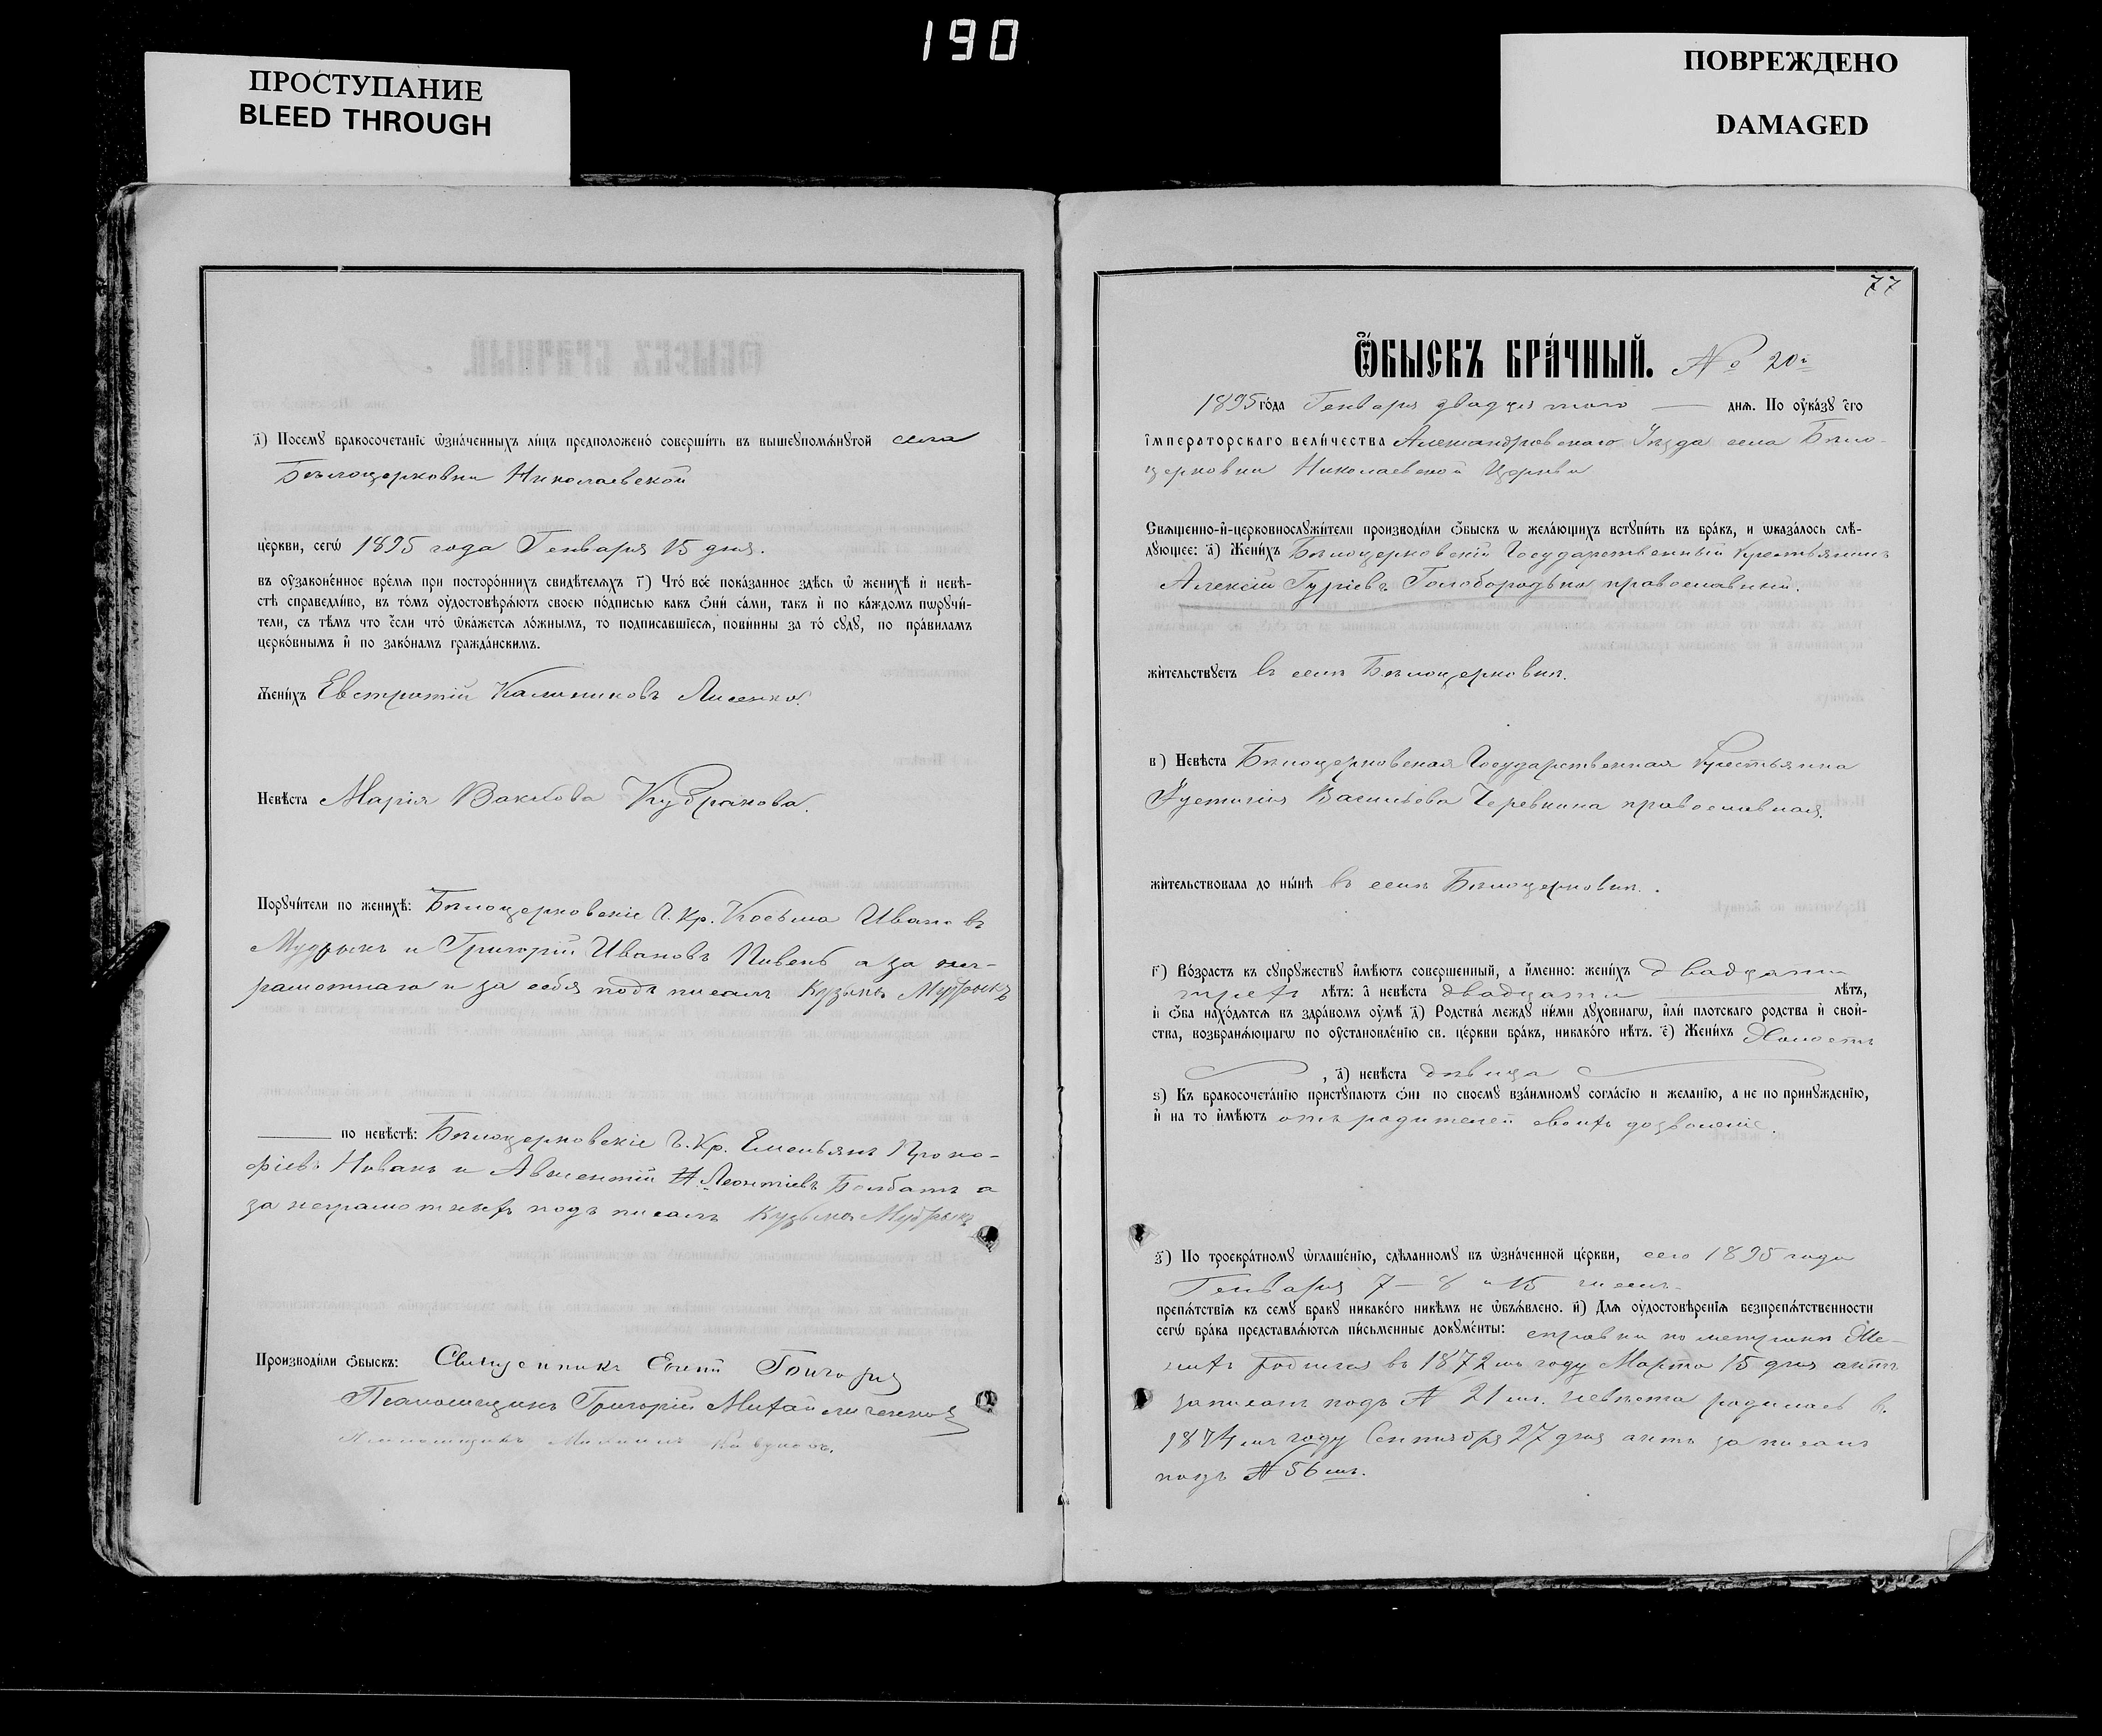 190
ПРОСТУПАНИЕ
BLEED THROUGH
ПОВРЕЖДЕНО
DAMAGED
д҃) Посемꙋ бракосочетанїе ѡзна́ченныхъ ли́цъ предположено̀ соверши́ть въ вышеꙋпомѧ́нꙋтой села
Бѣлоцерковки Николаевской
це́ркви, сегѡ̀ 1895 года Генваря 15 дня.
въ оу҆зако́ненное вре́мѧ при посторо́ннихъ свидѣ́телѧхъ г҃) Что̀ всѐ пока́занное здѣ́сь ѡ҆ женихѣ̀ и҆ невѣ́-
стѣ справедли́во, въ то́мъ оу҆достовѣрѧ́ютъ своею по́дписью какъ ѻ҆нѝ са́ми, такъ и҆ по ка́ждомъ пѡрꙋчи́-
тели, съ тѣ́мъ что є҆́сли что̀ ѡ҆ка́жетсѧ ло́жнымъ, то подписавшїесѧ, пови́нны за то̀ сꙋдꙋ̀, по пра́виламъ
церко́внымъ и҆ по зако́намъ гражда́нскимъ.
Жени́хъ Евстратій Калиниковъ Лисенко.
Невѣ́ста Марія Вакхова Кудрякова.
Порꙋчи́тели по женихѣ̀: Бѣлоцерковскіе Г. Кр. Косьма Ивановъ
Мудрыкъ и Григорій Ивановъ Пивень а за нег-
рамотнаго и за себя подъ писалъ Кузьма Мудрыкъ
по невѣ́стѣ: Бѣлоцерковскіе Г. Кр. Емельянъ Проко-
фіевъ Новакъ и Авксентій Леонтіевъ Болбатъ а
за неграмотныхъ подъ писалъ Кузьма Мудрыкъ
Производи́ли ѻ҆́быскъ: Священникъ Григорій
Псаломщикъ Григорій
Псаломщикъ
77
Ѻ҆́БЫСКЪ БРА́ЧНЫЙ. № 20й
1895 го́да Генваря двадцятого дня. По оу҆ка́зꙋ є҆гѡ̀
і҆мператорскаго вели́чества Александровскаго Уѣзда села Бѣло-
церковки Николаевской Церкви
Свѧще́нно-и҆-церковнослꙋжи́тели производи́ли ѻ҆́быскъ ѡ жела́ющихъ встꙋпи́ть въ бра́къ, и ѡказа́лось слѣ́-
дꙋющее: а҃) Жени́хъ Бѣлоцерковскій Государственный Крестьянинъ
Алексій Гуріевъ Голобородько православный.
жи́тельствꙋетъ въ селѣ Бѣлоцерковки.
в҃) Невѣ́ста Бѣлоцерковская Государственная Крестьянка
Іустинія Васильева Черевкина православная.
жи́тельствовала до ны́нѣ въ селѣ Бѣлоцерковки.
г҃) Во́зрастъ къ сꙋпрꙋжествꙋ и҆мѣ́ютъ соверше́нный, а и҆́менно: жени́хъ двадцати
трехъ лѣтъ: а҆ невѣ́ста двадцати лѣтъ,
и҆ ѻ҆́ба нахо́дѧтсѧ въ здра́вомъ оу҆мѣ̀ д҃) Родства̀ междꙋ ни́ми дꙋховнагѡ, и҆лѝ плотскаго родства и҆ свой-
ства, возбранѧ́ющагѡ по оу҆становле́нїю св. це́ркви бра́къ, никако́го нѣ́тъ. є҃) Жени́хъ Холостъ
, а҆) невѣ́ста дѣвица
ѕ҃) Къ бракосочета́нїю пристꙋпа́ютъ ѻ҆нѝ по своемꙋ̀ взаи́мномꙋ согла́сїю и жела́нїю, а не по принꙋжде́нїю,
и҆ на то и҆мѣ́ютъ отъ родителей своихъ дозволеніе.
з҃) По троекра́тномꙋ ѡ҆глаше́нїю, сдѣ́ланномꙋ въ ѡ҆зна́ченной це́ркви, сего 1895 года
Генваря 7 - 8 и 15 чиселъ
препѧ́тствїѧ къ семꙋ бракꙋ никако́го никѣ́мъ не ѡ҆бъѧ́влено. и҃) Длѧ оу҆достовѣ́ренїѧ безпрепѧ́тственности
сегѡ̀ бра́ка представлѧ́ютсѧ пи́сьменные докꙋме́нты: справки по метрики Же-
нихъ родился въ 1872мъ году Марта 15 дня актъ
записанъ подъ № 21мъ. невѣста родилась в.
1874мъ году Сентября 27 дня актъ записанъ
подъ № 56мъ.